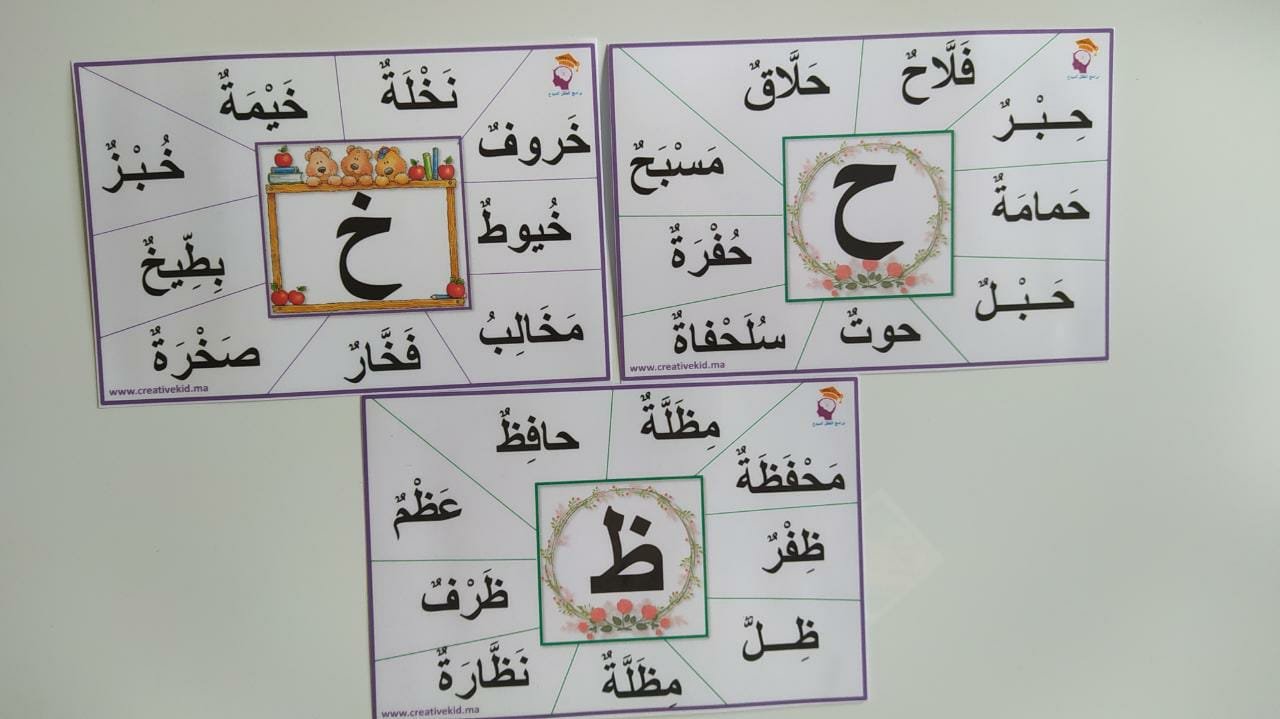 فَلَّاحٌ
حَلَّاقٌ
حِـبْـرٌ
مَسْبَحٌ
حَمامَةٌ
ح
حُفْرَةٌ
حَـبْـلٌ
حوتٌ
سُلَحْفاةٌ
www.creativekid.ma
برامج الطفل المبدع
نَخْلَةٌ
خَيْمَةٌ
خَروفٌ
خُبْـزٌ
خُيوطٌ
خ
بِطِّيخٌ
مَخَالِبُ
فَخَّارٌ
صَخْرَةٌ
www.creativekid.ma
برامج الطفل المبدع
مِظَلَّةٌ
حافِظٌ
مَحْفَظَةٌ
عَظْمٌ
ظِفْرٌ
ظ
ظَرْفٌ
ظِـــلٌّ
مِظَلَّةٌ
نَظَّارَةٌ
www.creativekid.ma
برامج الطفل المبدع